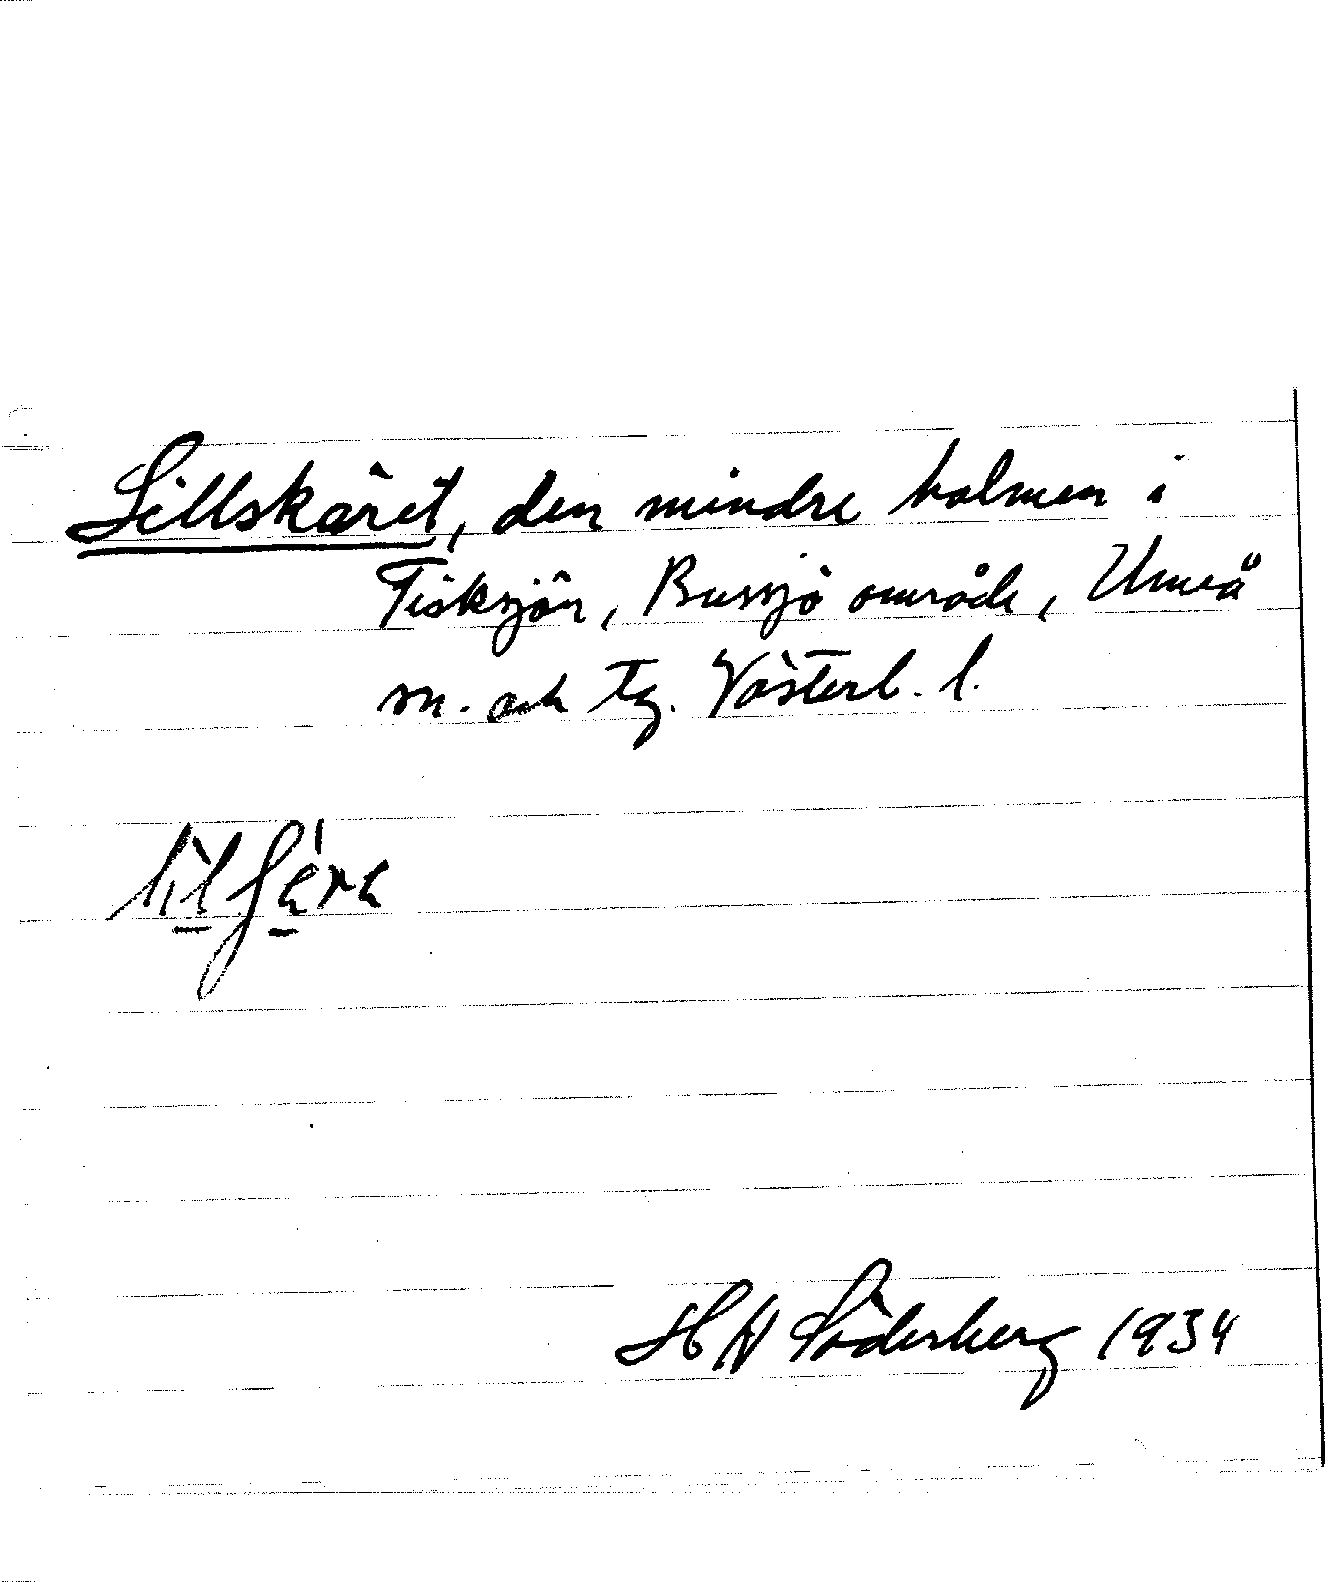 Lillskäret, den mindre holmen i
Tisksjön, Bussjö område, Umeå
sn. och tg. Västerb. l.
H N Söderberg 1934